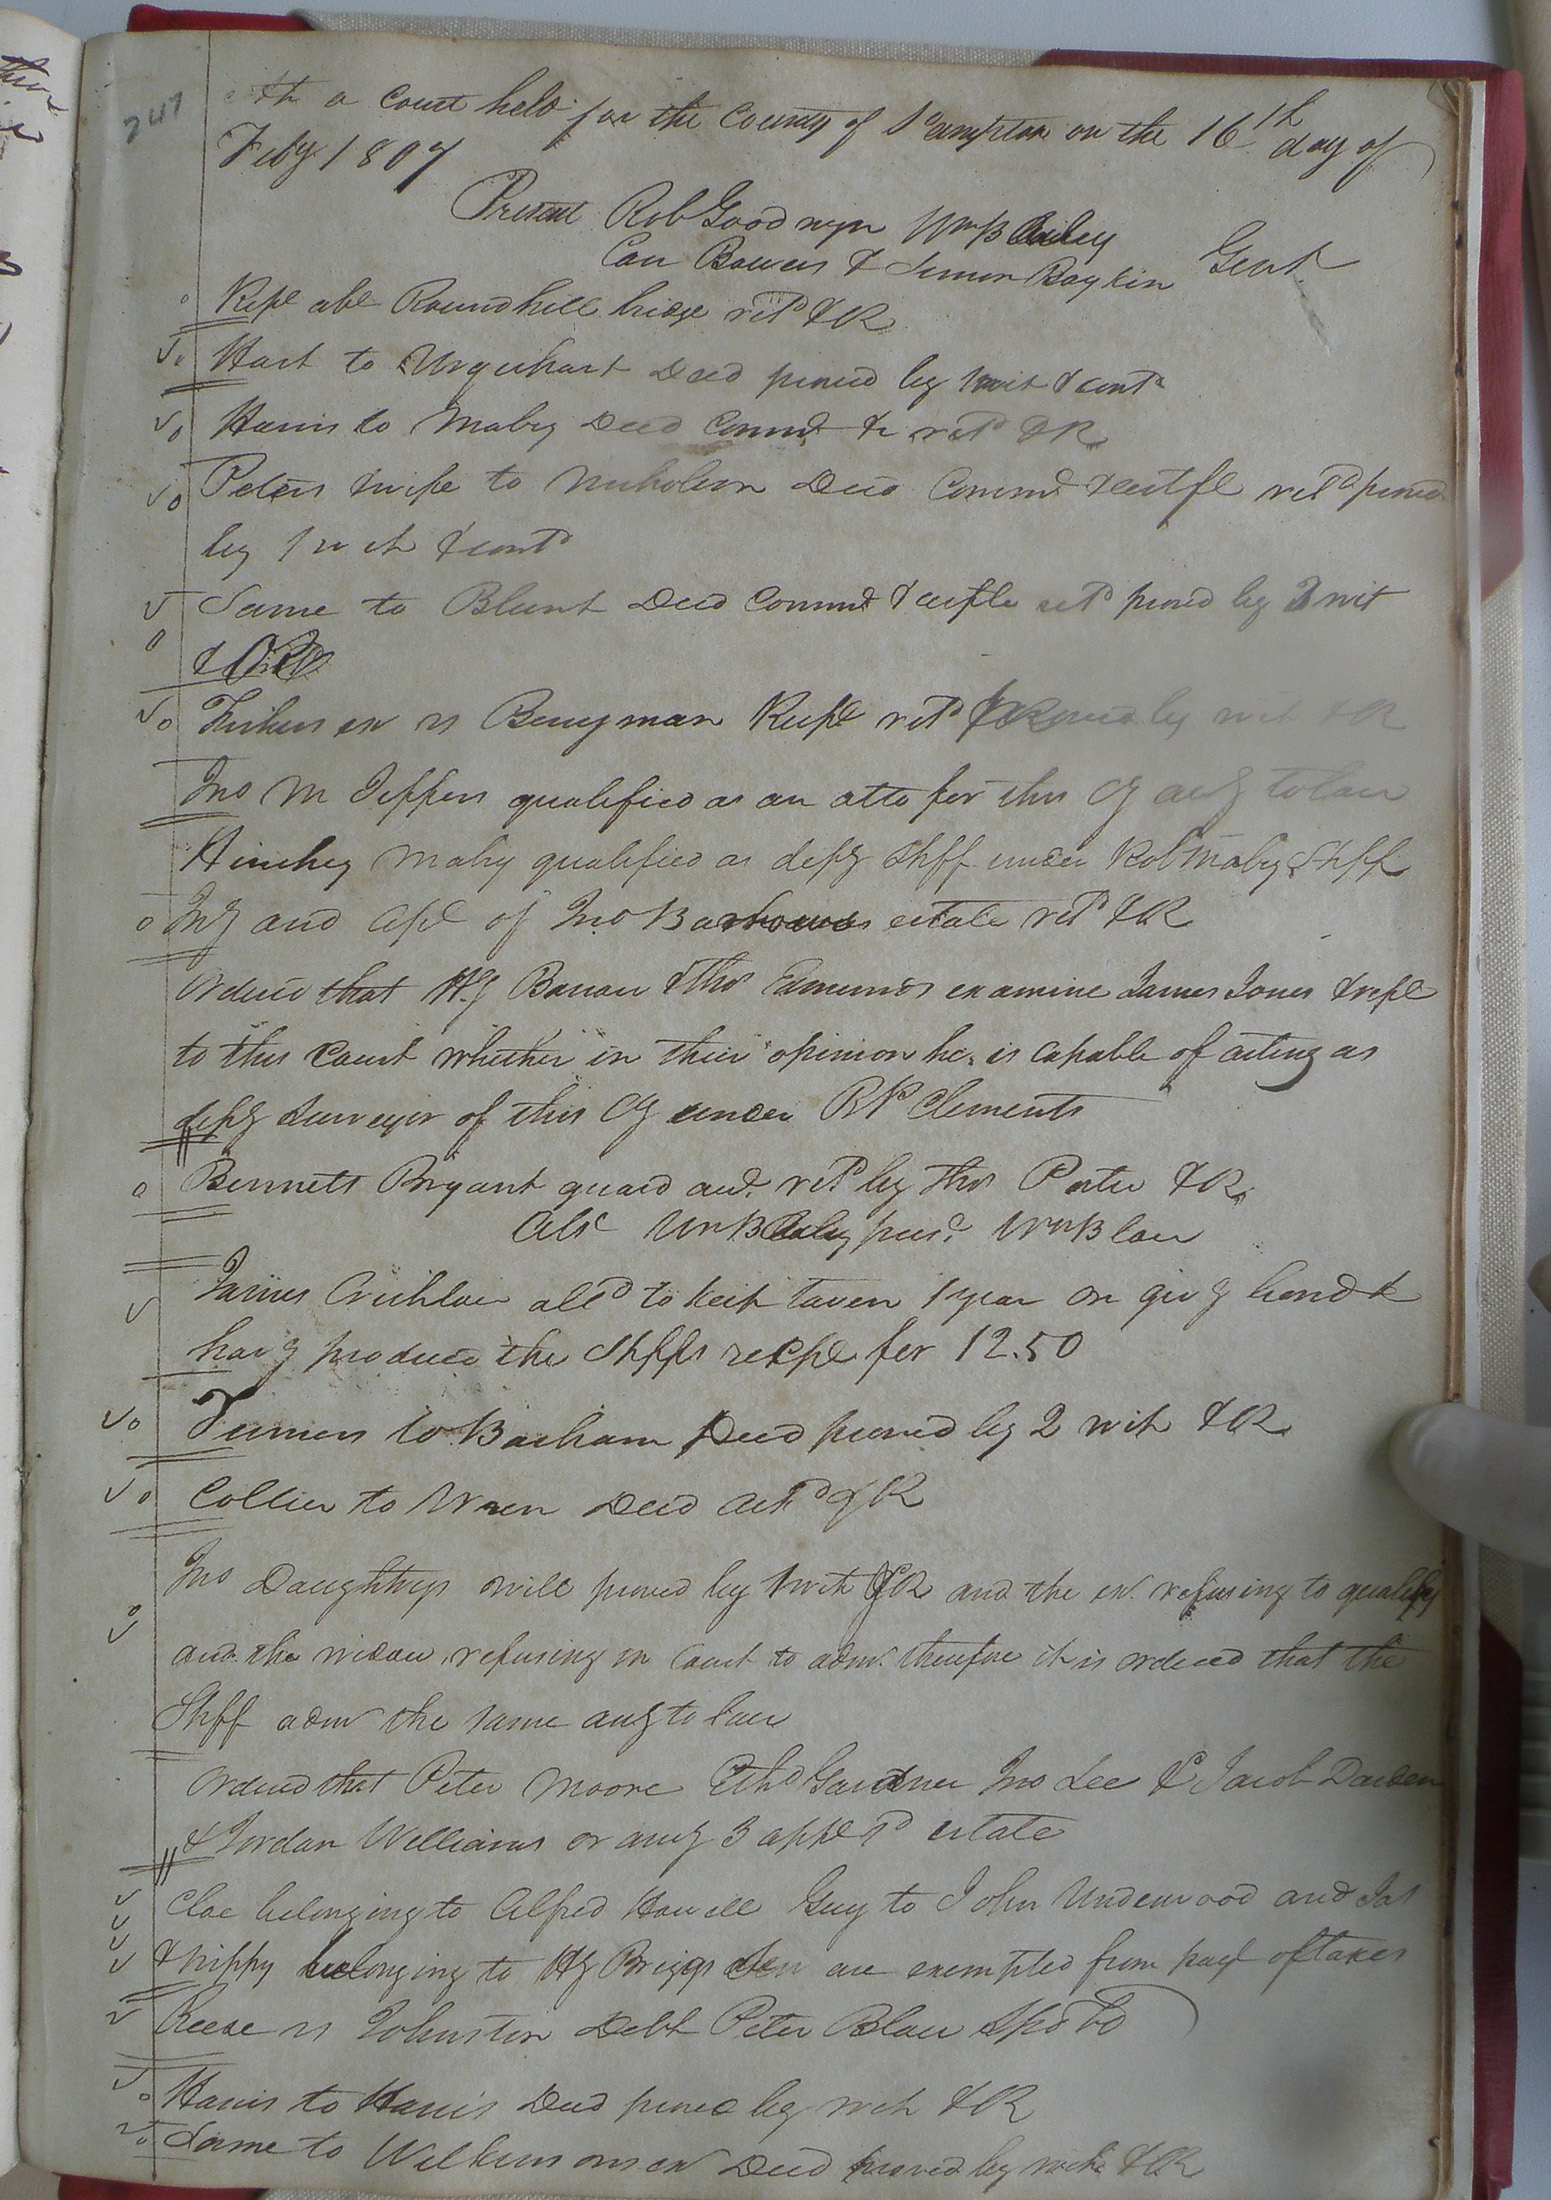 247
At a Court held for the County of Sºampton on the 16th day of
Feby 1807
Present Rob Goodwyn Wm B Bailey
Carr Bowers & Simon Boykin Gent
Repl abt Roundhill bridge retd & R
Hart to Urquhart Deed proved by 1 wit & contd
Harris to Mabry Deed Commd & retd & R
Peters & wife to Nicholson Deed Commd & certfl retd proved
by 1 wit & contd
Same to Blunt Deed Commd & certfle retd proved by 3 wit
& OR
exr vs Berryman Rept retd & R proved by wit & R
Jno M Jeffers qualified as an atto for this Cy accg to law
Hinchey Mabry qualified as depy Shff under Rob Mabry Shff
Invy and apl of Jno Barhams estate retd & R
Ordered that Hy Barrow & Thos Edmunds examine James Jones & repl
to this Court whether in their opinion he is capable of acting as
depy Surveyor of this Cy under Clements
Bennett Bryant guard acct retd by Thos Porter & R
Abst Wm B Bailey prest Wm Blow
James Crichlow alld to keep tavern 1 year on givg bond &
havg produced the Shffs recpt for 12.50
Turner to Barham Deed proved by 2 wit & R
Collier to Wren Deed ackd & R
Jno Daughtreys will proved by 1 wit & R and the exr refusing to qualify
and the widow refusing in Court to admr therefore it is ordered that the
Shff admr the same accg to law
Ordered that Peter Moore Ethd Gardner Jno Lee & Jacob Darden
& Jordan Williams or any 3 appl sd estate
Cloe belonging to Alfred Howell Guy to John Underwood and Jas
& hippy belonging to Hy Briggs Sen are exempted from payt of taxes
Reese vs Johnston Debt Peter Blow
Harris to Harris Deed proved by wit & R
Same to Wilkinson exr Deed proved by wit & R